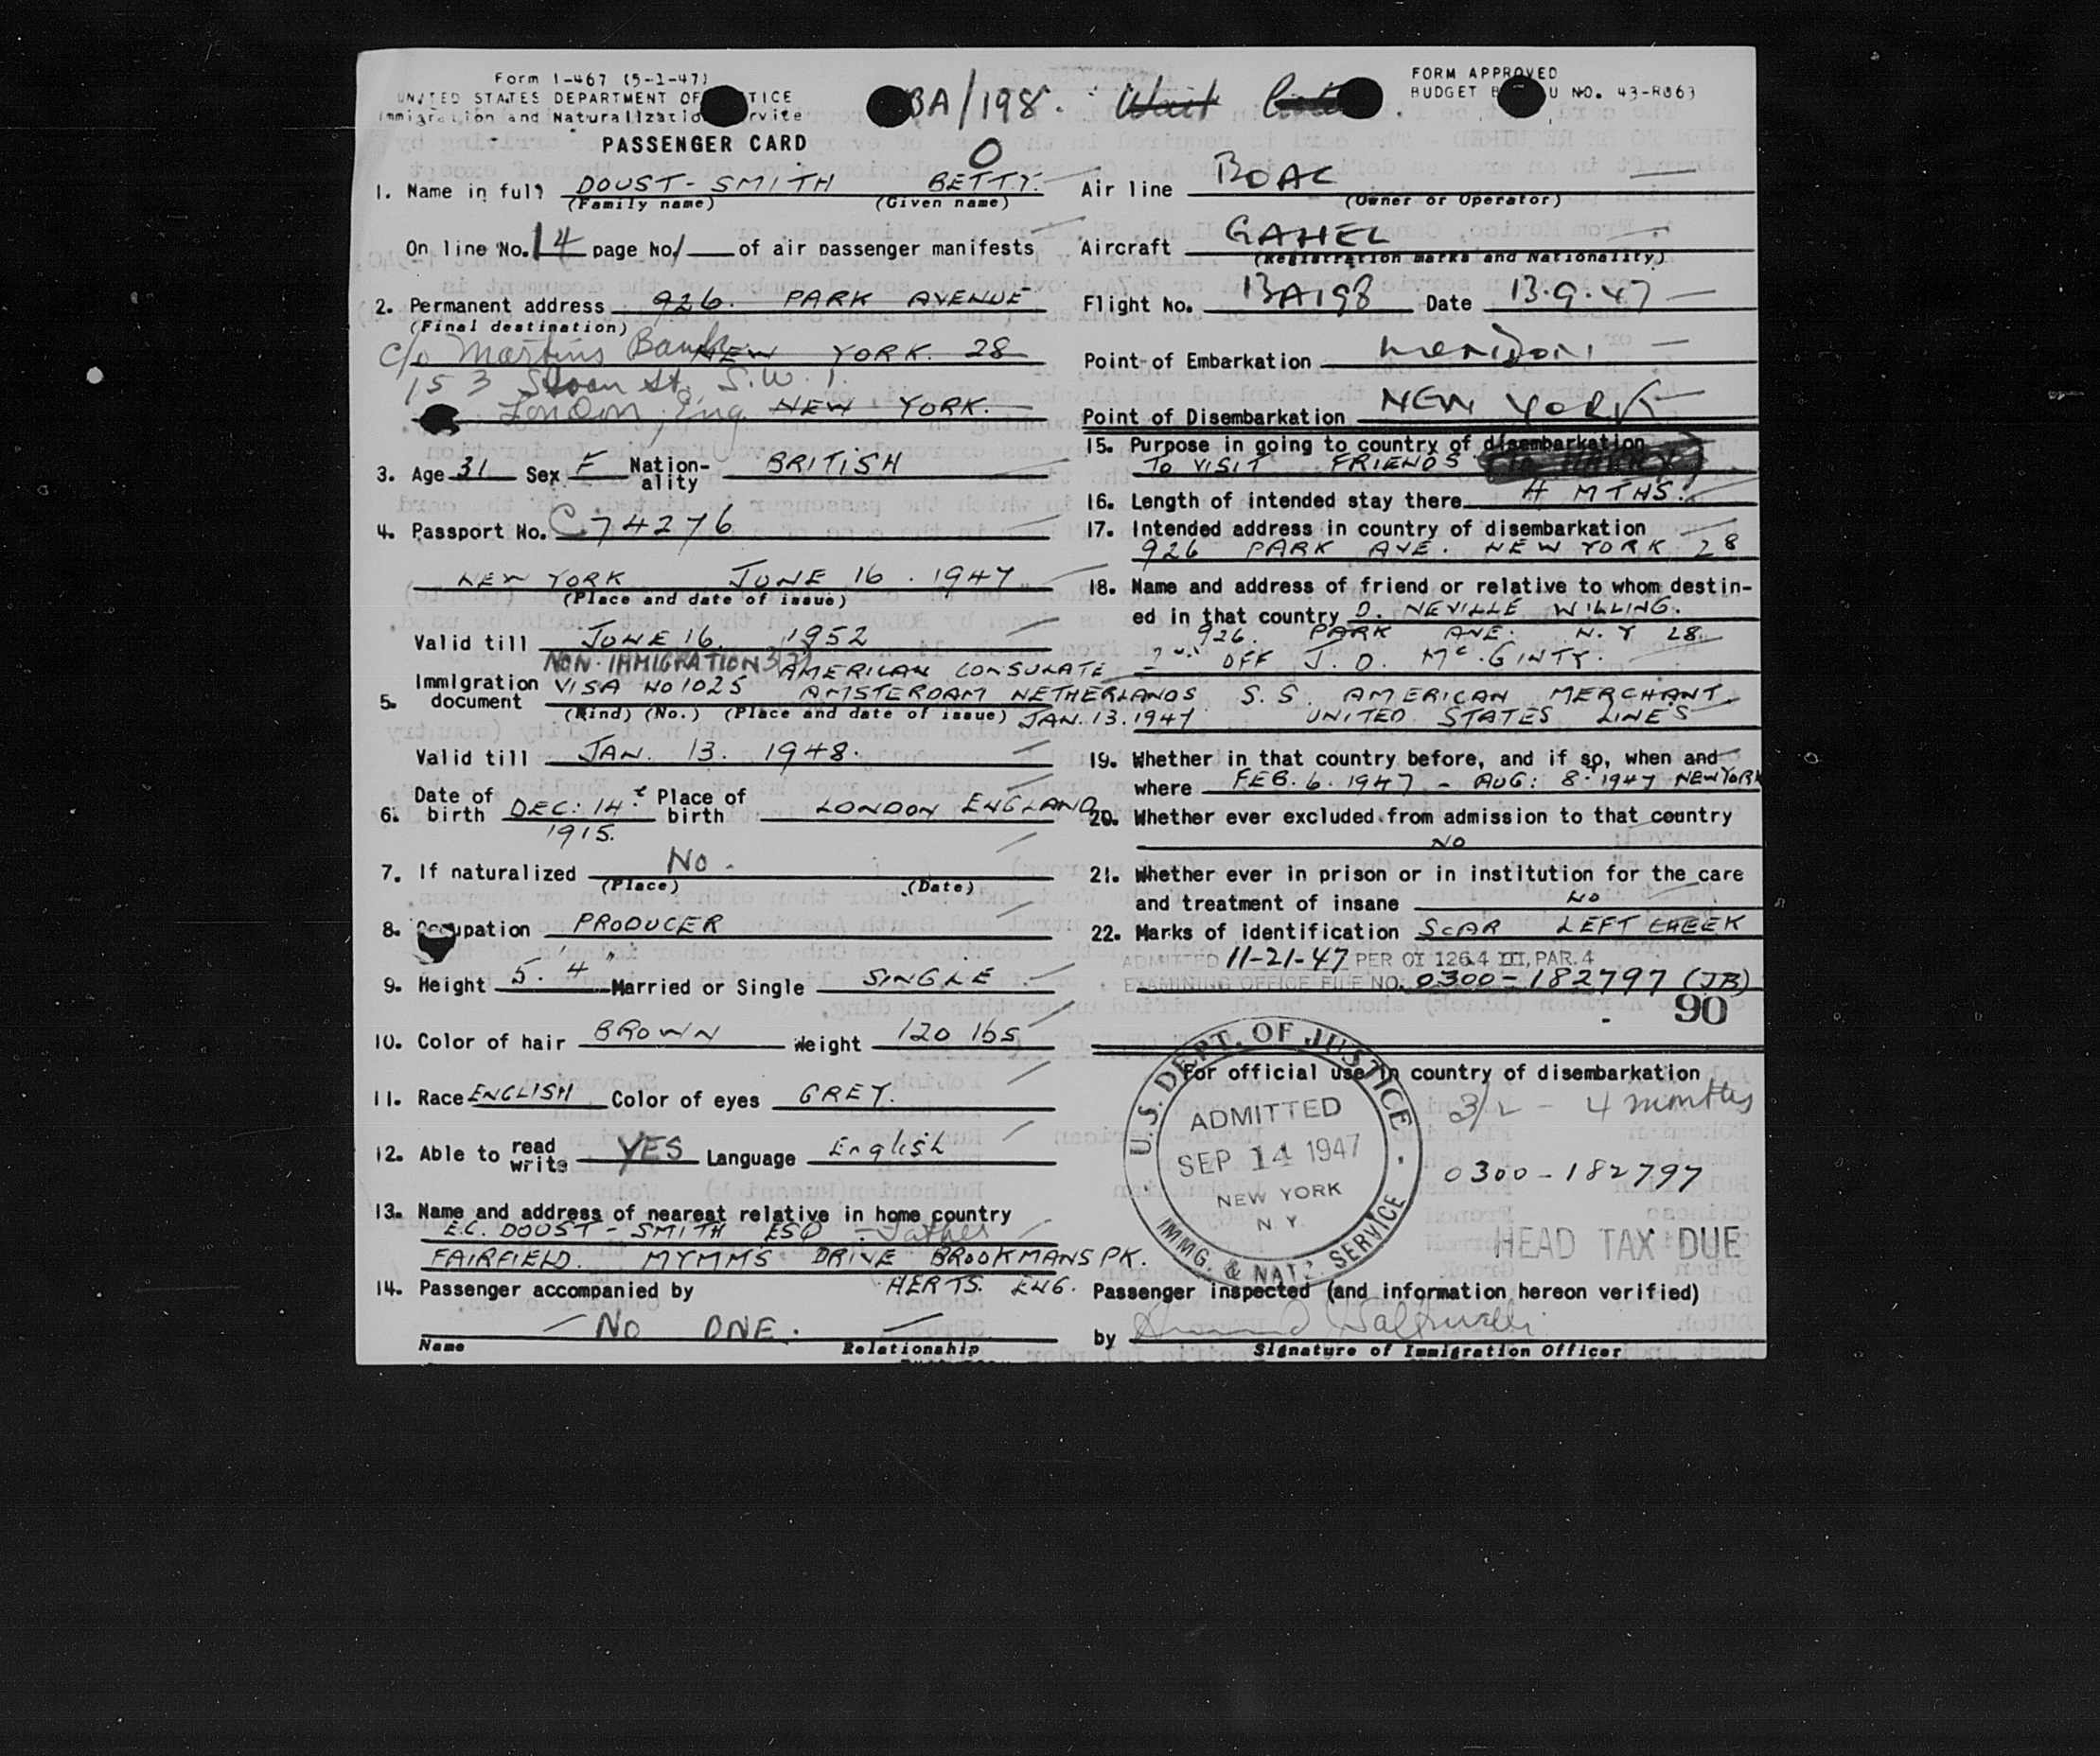 Form I-467 (5-1-47)
UNITED STATES DEPARTMENT OF TICE
Immigration and Naturalization rvice
PASSENGER CARD
BA/198.
FORM APPROVED
BUDGET B U NO. 43-R063
O
1. Name in full DOUST-SMITH BETTY.
(Family name) (Given name)
On line No. 14 page No. 1 of air passenger manifests
2. Permanent address 926. PARK AVENUE
(Final destination)
c/o Martins Bank NEW YORK. 28
153 Sloan St. S.W. 1.
London, Eng NEW YORK.
3. Age 31 Sex F Nation-ality BRITISH
4. Passport No. C74276
NEW YORK JUNE 16. 1947
(Place and date of issue)
Valid till JUNE 16. 1952
NON-IMMIGRATION 3(2) AMERICAN CONSULATE
5. Immigration document VISA NO 1025 AMSTERDAM NETHERLANDS
(Kind) (No.) (Place and date of issue) JAN. 13. 1947
Valid till JAN. 13. 1948.
6. Date of birth DEC: 14. Place of birth LONDON ENGLAND
1915.
7. If naturalized No.
(Place) (Date)
8. Occupation PRODUCER
9. Height 5' 4" Married or Single SINGLE
10. Color of hair BROWN Weight 120 lbs
11. Race ENGLISH Color of eyes GREY.
12. Able to read write YES Language English
13. Name and address of nearest relative in home country
E.C. DOUST-SMITH ESQ - Father
FAIRFIELD. MYMMS DRIVE BROOKMANS PK.
HERTS. ENG.
14. Passenger accompanied by
NO ONE.
Name Relationship
Air line BOAC
(Owner or Operator)
Aircraft GAHEL
(Registration marks and Nationality)
Flight No. BA198 Date 13.9.47
Point of Embarkation
Point of Disembarkation NEW YORK
15. Purpose in going to country of disembarkation
TO VISIT FRIENDS
16. Length of intended stay there 4 MTHS.
17. Intended address in country of disembarkation
926 PARK AVE. NEW YORK 28
18. Name and address of friend or relative to whom destin-
ed in that country D. NEVILLE WILLING.
926. PARK AVE. N.Y 28.
OFF J. D. McGINTY.
S.S. AMERICAN MERCHANT
UNITED STATES LINES
19. Whether in that country before, and if so, when and
where FEB. 6. 1947 - AUG: 8. 1947 NEW YORK
20. Whether ever excluded from admission to that country
NO
21. Whether ever in prison or in institution for the care
and treatment of insane NO
22. Marks of identification SCAR LEFT CHEEK
ADMITTED 11-21-47 PER OI 126.4 III, PAR. 4
EXAMINING OFFICE FILE NO. 0300-182797 (JB)
90
For official use in country of disembarkation
3/2 - 4 months
U.S. DEPT. OF JUSTICE
ADMITTED
SEP 14 1947
NEW YORK
N. Y.
IMMG. & NATZ. SERVICE
0300-182797
HEAD TAX DUE
Passenger inspected (and information hereon verified)
by
Signature of Immigration Officer